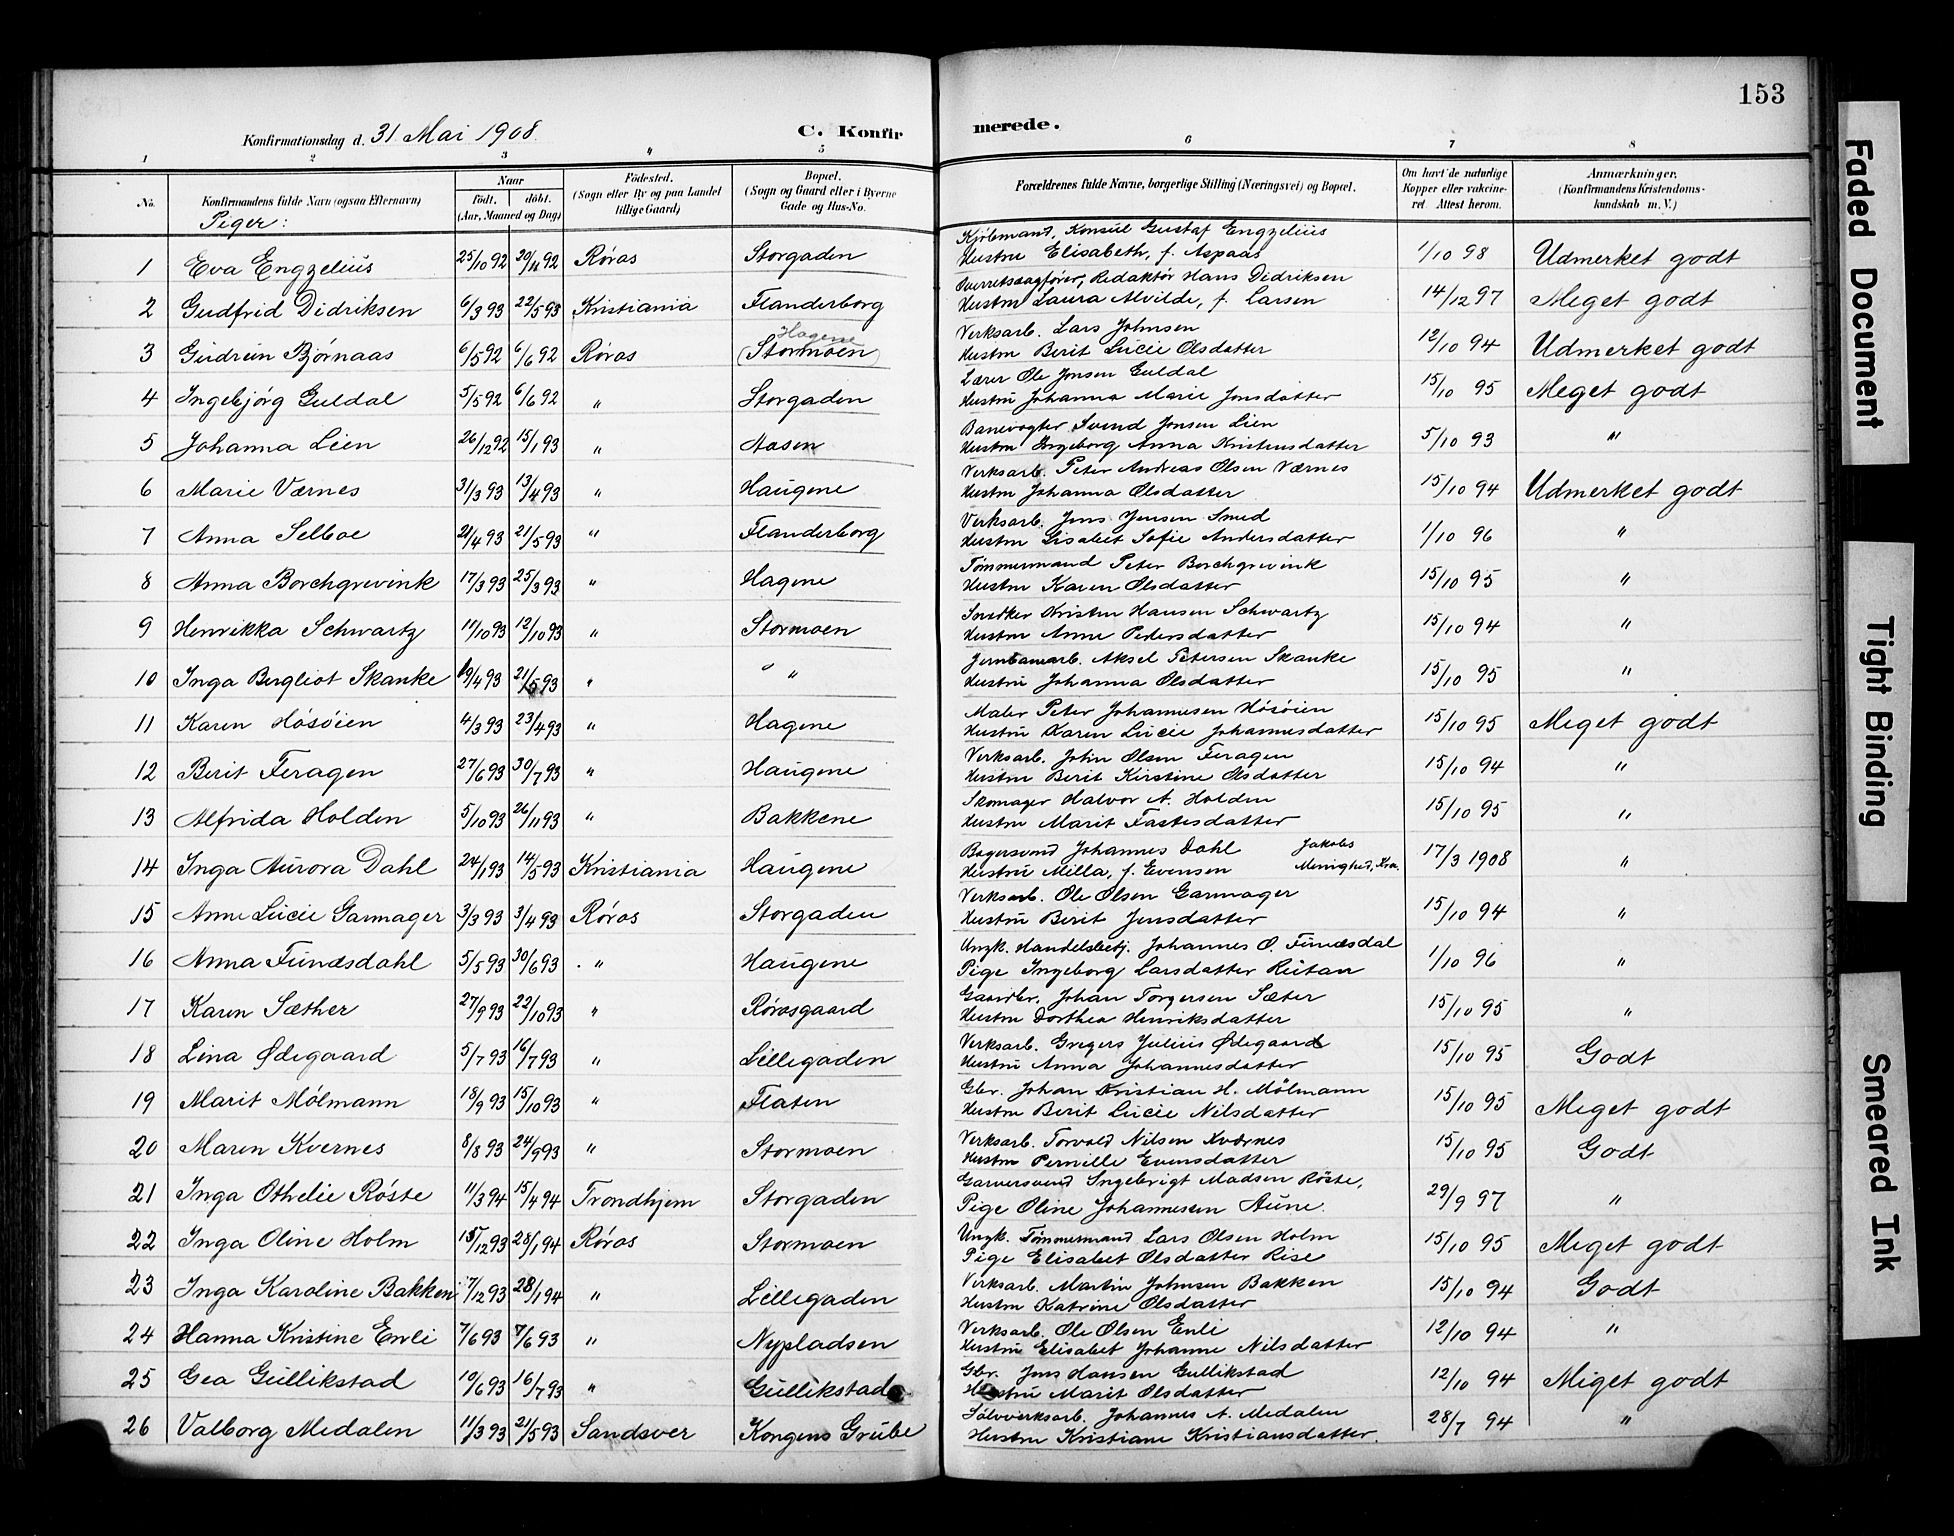 153
Konfirmationsdag d. 31. Mai 1908. C. Konfirmerede.
1 2 3 4 5 6 7 8
No. Konfirmandens fulde Navn (ogsaa Efternavn) Naar født. døbt. (Aar, Maaned og Dag) Fødested. (Sogn eller By og paa Landet tillige Gaard) Bopæl. (Sogn og Gaard eller i Byerne Gade og Hus-No. Forældrenes fulde Navne, borgerlige Stilling (Næringsvei) og Bopæl. Om havt de naturlige Kopper eller vakcineret. Attest herom. Anmærkninger. (Konfirmandens Kristendomskundskab m. V.)
Piger:
1 Eva Engzeliüs 25/10 92 30/11 92 Röros Storgaden Kjöbmand, Konsül Güstaf Engzeliüs 1/10 98 Udmerket godt
Hustru Elisabeth, f. Aspaas
2 Gudfrid Didriksen 6/3 93 22/5 93 Kristiania Flanderborg Overretssagförer, Redaktör Hans Didriksen 14/12 97 Meget godt
Hustru Laura Alvilde, f. Larsen
3 Güdrün Bjørnaas 6/5 92 6/6 92 Röros Hagene (Stormoen) Verksarb. Lars Johnsen 12/10 94 Udmerket godt
Hustru Berit Lücie Olsdatter
4 Ingebjørg Guldal 5/5 92 6/6 92 " Storgaden Lærer Ole Jonsen Guldal 15/10 95 Meget godt
Hustru Johanna Marie Jonsdatter
5 Johanna Lien 26/12 92 15/1 93 " Aasen Banevogter Svend Jonsen Lien 5/10 93 "
Hustru Ingeborg Anna Kristensdatter
6 Marie Værnes 31/3 93 13/4 93 " Haügene Verksarb. Peter Andreas Olsen Værnes 15/10 94 Udmerket godt
Hustru Johanna Olsdatter
7 Anna Selboe 21/4 93 21/5 93 " Flanderborg Verksarb. Jens Jensen Smed 1/10 96 "
Hustru Lisabet Sofie Andersdatter
8 Anna Borchgrevink 17/3 93 25/3 93 " Hagene Tömmermand Peter Borchgrevink 15/10 95 "
Hustru Karen Olsdatter
9 Henrikka Schwartz 11/10 93 12/10 93 " Stormoen Snedker Kristen Hansen Schwartz 15/10 94 "
Hustru Anne Pedersdatter
10 Inga Bergliot Skanke 19/4 93 21/5 93 " " " Jernbanearb. Aksel Petersen Skanke 15/10 95 "
Hustru Johanna Olsdatter
11 Karen Hösöien 4/3 93 23/4 93 " Hagene Maler Peter Johannesen Hösöien 15/10 95 Meget godt
Hustru Karen Lücie Johannesdatter
12 Berit Feragen 27/6 93 30/7 93 " Haügene Verksarb. John Olsen Feragen 15/10 94 "
Hustru Berit Kirstine Olsdatter
13 Alfrida Holden 5/10 93 26/11 93 " Bakkene Skomager Halvor A. Holden 15/10 95 "
Hustru Marit Fastesdatter
14 Inga Aürora Dahl 24/1 93 14/5 93 Kristiania Haügene Bagersvend Johannes Dahl Jakobs 17/3 1908 "
Hustru Milla, f. Evensen Menighed, Kra.
15 Anne Lücie Garmager 3/3 93 3/4 93 Röros Storgaden Verksarb. Ole Olsen Garmager 15/10 94 "
Hustru Berit Jensdatter
16 Anna Fündsdahl 5/5 93 30/6 93 " Haügene Ungk. Handelsbetj. Johannes O. Fündsdal 1/10 96 "
Pige Ingeborg Larsdatter Rütan
17 Karen Sæther 27/9 93 22/10 93 " Rörosgaard Gaardbr. Johan Torgersen Sæter 15/10 95 "
Hustru Dorthea Henriksdatter
18 Lina Ødegaard 5/7 93 16/7 93 " Lillegaden Verksarb. Gregers Juliüs Ødegaard 15/10 95 Godt
Hustru Anna Johannesdatter
19 Marit Mölmann 18/9 93 15/10 93 " Flaten Gbr. Johan Kristian H. Mölmann 15/10 95 Meget godt
Hustru Berit Lücie Nilsdatter
20 Maren Kvernes 8/8 93 24/9 93 " Stormoen Verksarb. Torvald Nilsen Kværnes 15/10 95 Godt
Hustru Pernille Evensdatter
21 Inga Othelie Röste 11/3 94 15/4 94 Trondhjem Storgaden Garversvend Ingebrigt Madsen Röste, 29/9 97 "
Pige Oline Johannesen Aüne.
22 Inga Oline Holm 15/12 93 28/1 94 Röros Stormoen Ungk. Tömmermand Lars Olsen Holm 15/10 95 Meget godt
Pige Elisabet Olsdatter Rise
23 Inga Karoline Bakken 7/12 93 28/1 94 " Lillegaden Verksarb. Martin Johnsen Bakken 15/10 94 Godt
Hustru Katrine Olsdatter
24 Hanna Kristine Enli 7/6 93 7/6 93 " Nypladsen Verksarb. Ole Olsen Enli 12/10 94 "
Hustru Elisabet Johanne Nilsdatter
25 Gea Güllikstad 10/6 93 16/7 93 " Güllikstad Gbr. Jens Hansen Gullikstad 12/10 94 Meget godt
Hustru Marit Olsdatter
26 Valborg Medalen 11/3 93 21/5 93 Sandsver Kongens Grübe Sölvverksarb. Johannes A. Medalen 28/7 94 "
Hustru Kristiane Kristiansdatter.
Faded Document
Tight Binding
Smeared Ink